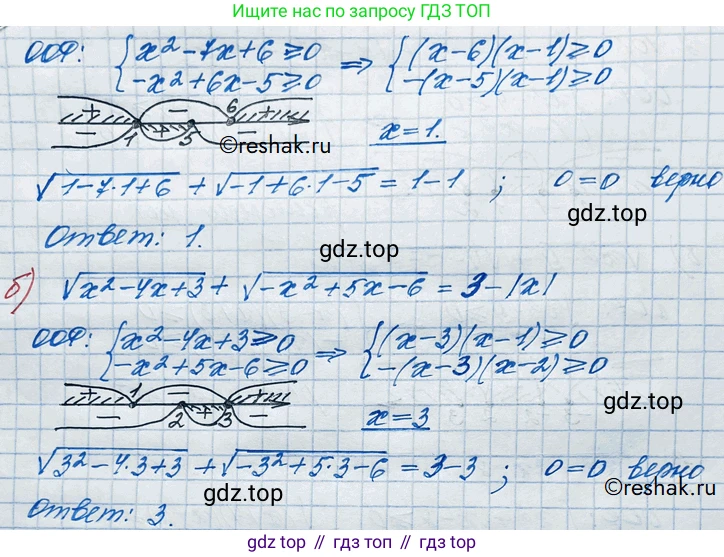 Ищите нас по запросу ГДЗ ТОП
ООФ: {x²-7x+6≥0 ⇒ {(x-6)(x-1)≥0
{-x²+6x-5≥0 {-(x-5)(x-1)≥0
+ - 6 +
- 1 + 5 - x=1.
©reshak.ru
√(1-7·1+6) + √(-1+6·1-5) = 1-1 ; 0=0 верно
gdz.top
Ответ: 1.
gdz.top
б) √(x²-4x+3) + √(-x²+5x-6) = 3-|x|
ООФ: {x²-4x+3≥0 ⇒ {(x-3)(x-1)≥0
{-x²+5x-6≥0 {-(x-3)(x-2)≥0
+ 1 - +
- 2 + 3 - x=3
gdz.top
√(3²-4·3+3) + √(-3²+5·3-6) = 3-3 ; 0=0 верно
gdz.top
©reshak.ru
Ответ: 3.
gdz.top // гдз.топ // gdz.top // гдз.топ